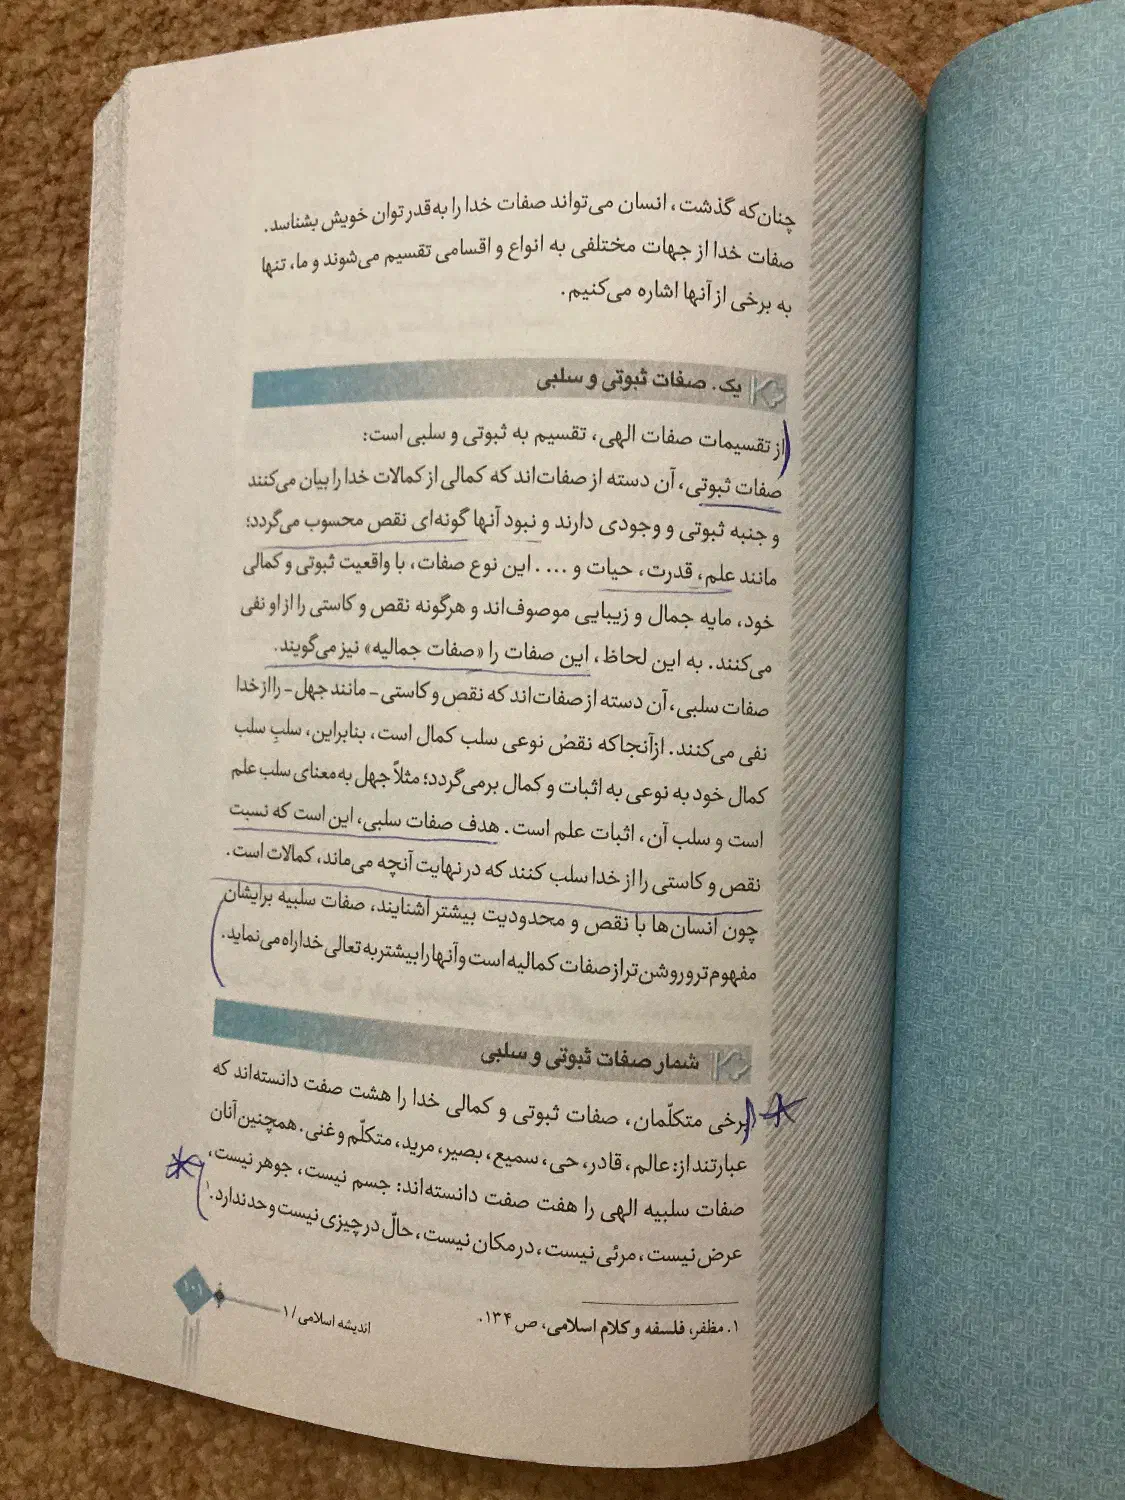 چنان‌که گذشت، انسان می‌تواند صفات خدا را به‌قدر توان خویش بشناسد.
صفات خدا از جهات مختلفی به انواع و اقسامی تقسیم می‌شوند و ما، تنها
به برخی از آنها اشاره می‌کنیم.
یک. صفات ثبوتی و سلبی
از تقسیمات صفات الهی، تقسیم به ثبوتی و سلبی است:
صفات ثبوتی، آن دسته از صفات‌اند که کمالی از کمالات خدا را بیان می‌کنند
و جنبه ثبوتی و وجودی دارند و نبود آنها گونه‌ای نقص محسوب می‌گردد؛
مانند علم، قدرت، حیات و .... این نوع صفات، با واقعیت ثبوتی و کمالی
خود، مایه جمال و زیبایی موصوف‌اند و هرگونه نقص و کاستی را از او نفی
می‌کنند. به این لحاظ، این صفات را «صفات جمالیه» نیز می‌گویند.
صفات سلبی، آن دسته از صفات‌اند که نقص و کاستی - مانند جهل - را از خدا
نفی می‌کنند. ازآنجاکه نقصْ نوعی سلب کمال است، بنابراین، سلبِ سلب
کمال خود به نوعی به اثبات و کمال برمی‌گردد؛ مثلاً جهل به‌معنای سلب علم
است و سلب آن، اثبات علم است. هدف صفات سلبی، این است که نسبت
نقص و کاستی را از خدا سلب کنند که در نهایت آنچه می‌ماند، کمالات است.
چون انسان‌ها با نقص و محدودیت بیشتر آشنایند، صفات سلبیه برایشان
مفهوم‌تر و روشن‌تر از صفات کمالیه است و آنها را بیشتر به تعالی خدا راه می‌نماید.
شمار صفات ثبوتی و سلبی
برخی متکلّمان، صفات ثبوتی و کمالی خدا را هشت صفت دانسته‌اند که
عبارتند از: عالم، قادر، حی، سمیع، بصیر، مرید، متکلّم و غنی. همچنین آنان
صفات سلبیه الهی را هفت صفت دانسته‌اند: جسم نیست، جوهر نیست،
عرض نیست، مرئی نیست، در مکان نیست، حالّ در چیزی نیست و حد ندارد.۱
۱. مظفر، فلسفه و کلام اسلامی، ص ۱۳۴.
اندیشه اسلامی / ۱
۱۰۱